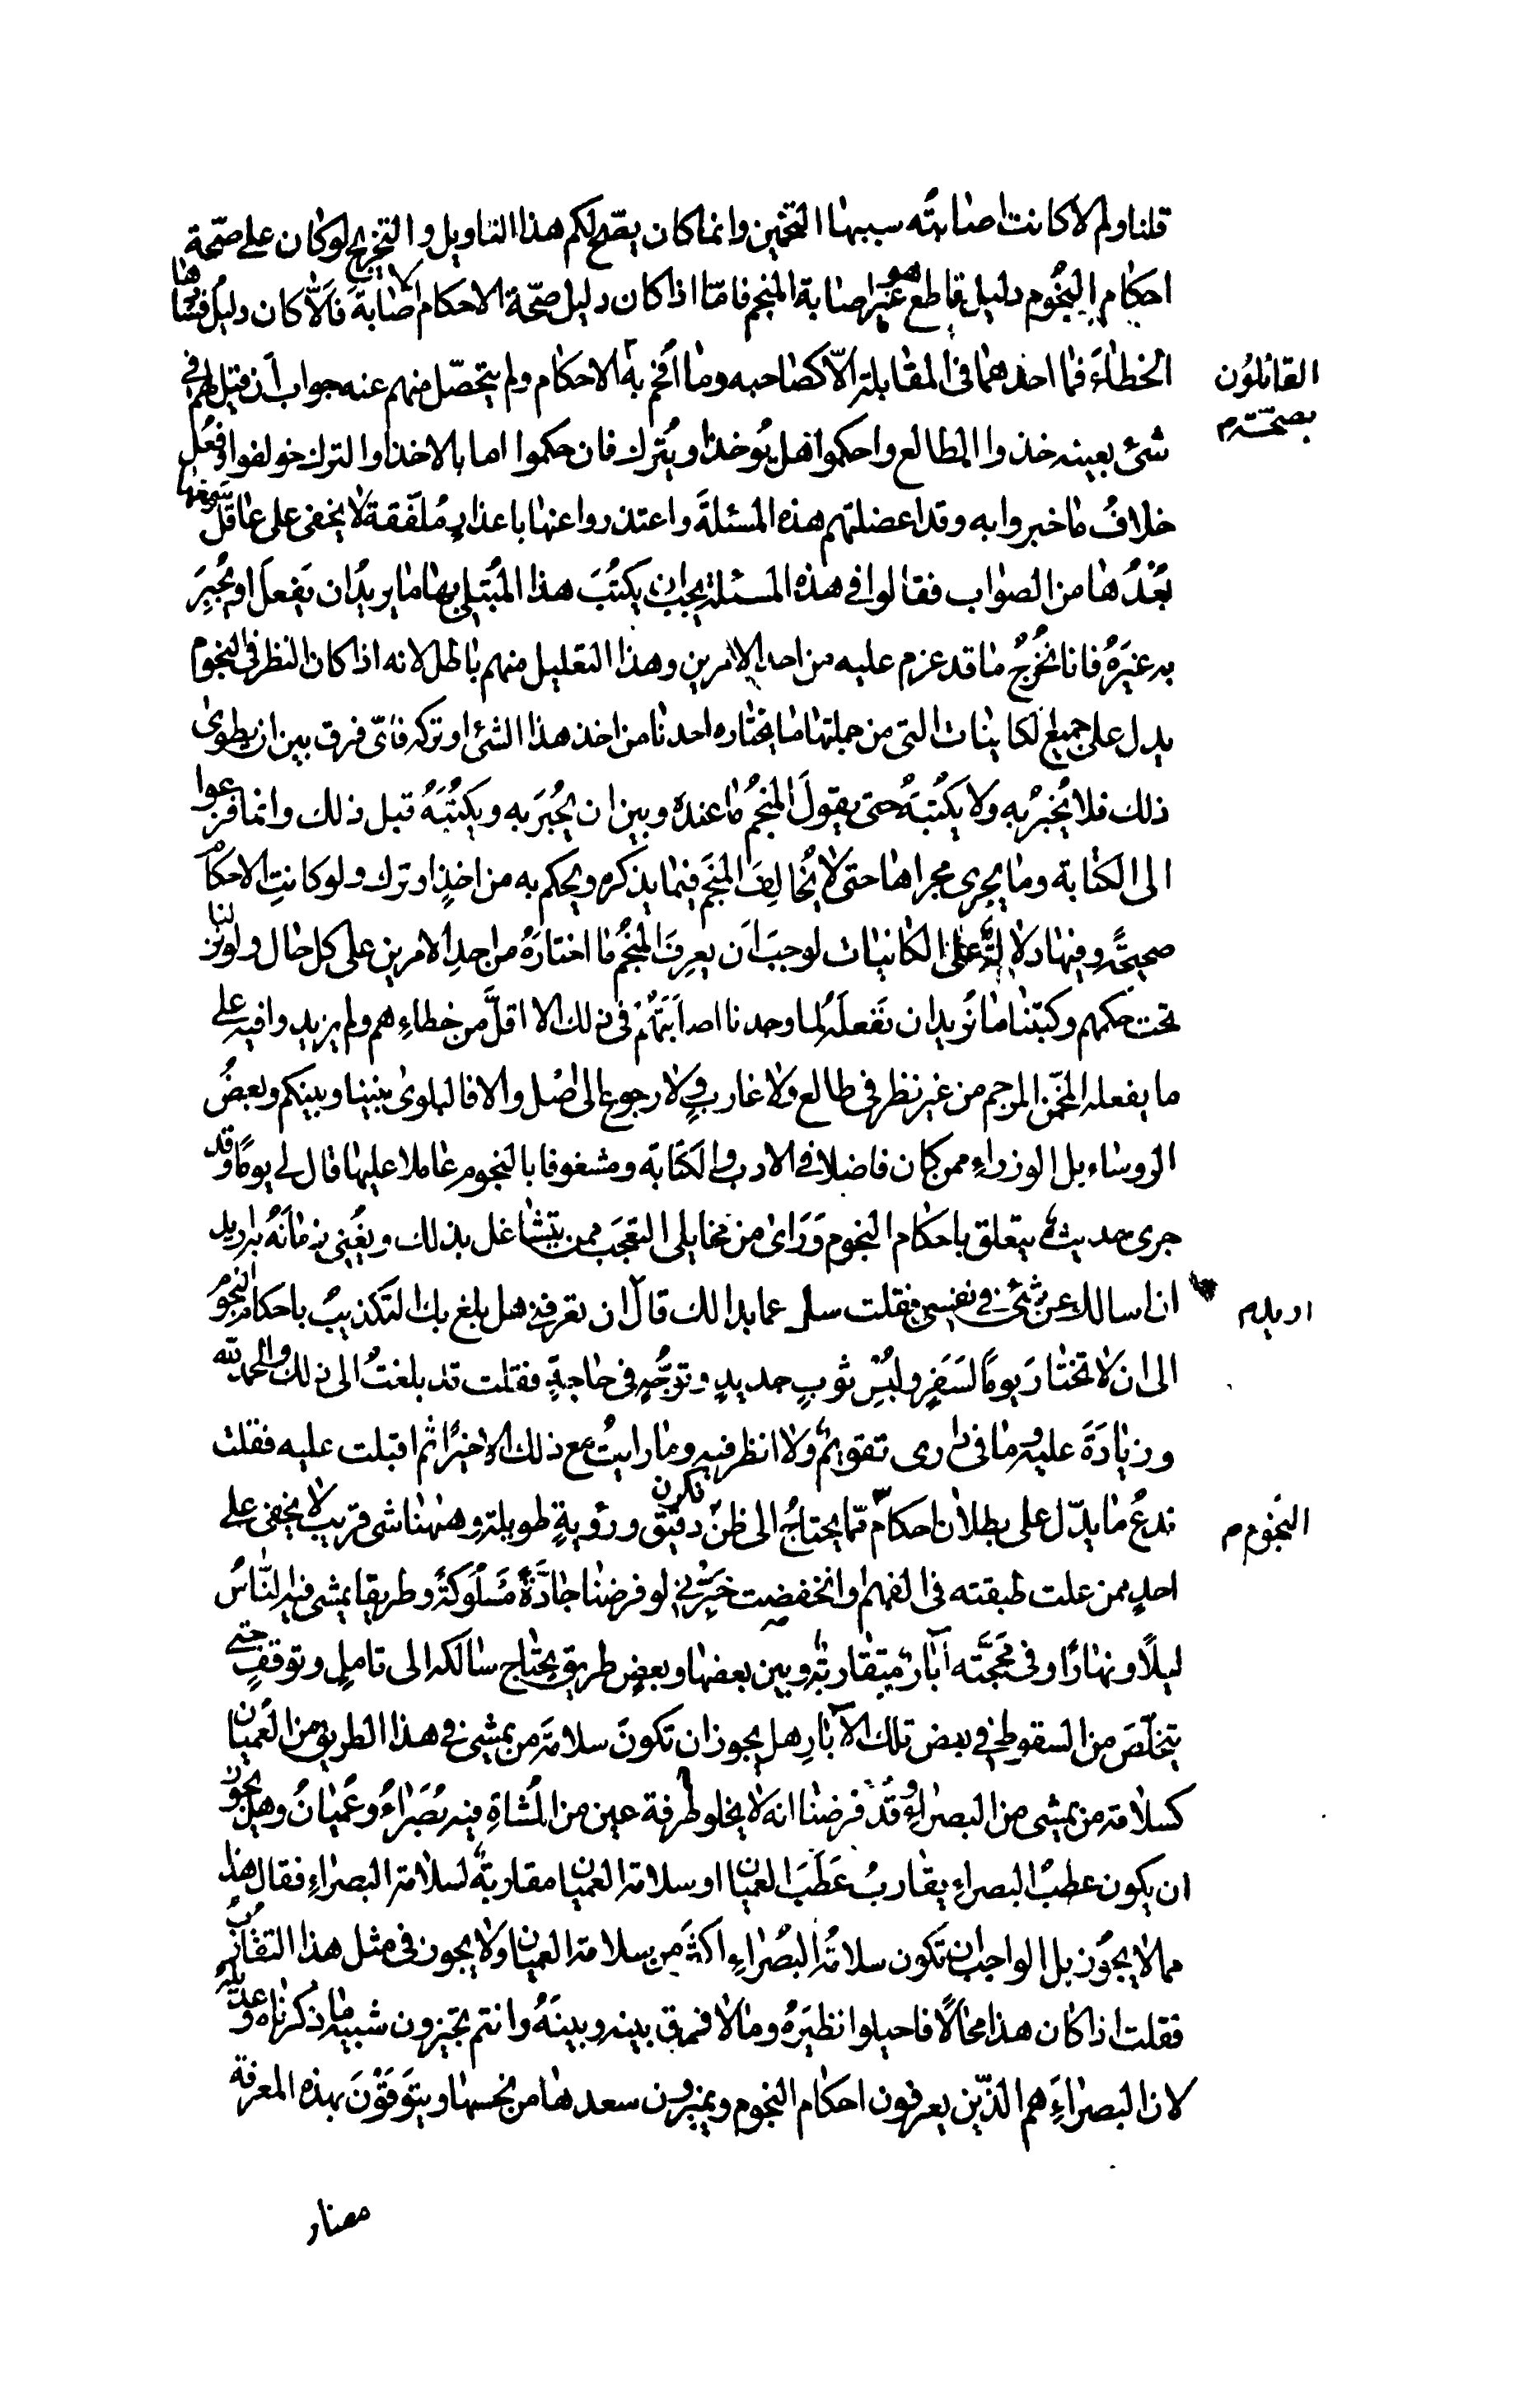 قلنا ولم لا كانت اصابته سببها التخمين وانما كان يصح لكم هذا التاويل والتخريج لو كان على صحة
احكام النجوم دليل قاطع هو غير اصابة المنجم فامّا اذا كان دليل صحّة الاحكام الاصابة فالّا كان دليل فسادها
الخطاء فما احدهما فى المقابلة الّا كصاحبه وما افحم به الاحكام ولم يتحصّل منهم عنه جواب ان قيل لهم فى
القائلون
بصحّة م
شئ بعينه خذوا الطالع واحكموا هل يُوخذ او يُترك فان حكموا اما بالاخذ او الترك خولفوا وفُعل
خلافُ ما خبروا به وقد اعضلتهم هذه المسئلةَ واعتذروا عنها باعذارٍ مُلفّقة لا يخفى على عاقل سمعها
بُعْدُها من الصواب فقالوا فى هذه المسئلة يجب ان يكتُبَ هذا المُبتلى بها ما يريدُ ان يَفعلَ او يُخبِرَ
به غيَرهُ فانا نُخرجُ ما قد عزم عليه من احد الامرين وهذا التعليل منهم باطل لانه اذا كان النظر فى النجوم
يدل على جميع الكاينات التى من جملتها ما يختاره احدنا من اخذ هذا الشئ او تركه فاىّ فرق بين ان يطوى
ذلك فلا يُخبرُ به ولا يكتبَهُ حتى يقولَ المنجمُ ما عنده وبين ان يُخبرَ به ويكتُبَهُ قبل ذلك وانما فزعوا
الى الكتابة وما يجرى مجراها حتى لا يُخالِفَ المنجّم فيما يذكره ويحكم به من اخذٍ او ترك ولو كانتِ الاحكام
صحيحةً وفيها دلالة على الكائنات لوجب اَن يعرِفَ المنجُم ما اختارَهُ من احدِ الامرين على كل حال ولو نزلنا
تحت حكمهم وكتبنا ما نُريد ان نفعلَهُ لما وجدنا اصابَتَهُمْ فى ذلك الا اقلَّ من خطاءِهم ولم يزيدوا فيه على
ما يفعله المخمّن المرجم من غير نظر فى طالع ولا غاربٍ ولا رجوع الى اصْل والا فالبلوىٰ بيننا وبينكم وبعضُ
الروساء بل الوزراءِ ممن كان فاضلا فى الادب والكتابة ومشغوفا بالنجوم عاملا عليها قال لى يومًا وقد
جرى حديث يتعلق باحكام النجوم وَرَاىٰ من مخايلى التعجَب ممن يتشاغل بذلك ويُفنى زمانَهُ به اريد
ان اسالك عن شئ فى نفسى فقلت سل عما بدا لك قال ان تعرفنى هل بلغ بك التكذيبُ باحكام النجوم
اريد م
الى ان لا تختارَ يومًا لسَفَرٍ ولُبْسِ ثوبٍ جديدٍ وتوجُّهٍ فى حاجةٍ فقلت قد بلغتُ الى ذلك والحمد لله
وزيادَةَ عليه وما فى دارى تقويمٌ ولا انظر فيه وما رايتُ مع ذلك الا خيرًا ثم اقبلت عليه فقلت
ندعُ ما يدّل على بطلان احكام مّما يحتاجُ الى ظنّ دقيق ورؤيةٍ طويلة وههنا شى قريب لا يخفى على
النجوم م
احدٍ ممن علت طبقته فى الفهم او انخفضت خبّرنى لو فرضنا جادَّةً مَسْلُوكةً وطريقا يمشى فيه النّاسُ
ليلًا ونهارًا وفى مَحَجَّته آبار متقاربة وبين بعضها وبعضٍ طريق يحتاج سالكه الى تاملٍ وتوقفٍ حتى
يتخلّصَ من السقوط فى بعض تلك الآبارِ هل يجوز ان تكونَ سلامة من يمشى فى هذا الطريق من العُميان
كسلامة من يمشى من البصراءِ وقَد فرضنا انه لا يخلو طرفة عين من المُشاةِ فيه بُصَراءُ وعُميانُ وهل يجوز
ان يكون عطبُ البصراءِ يقاربُ عَطَبَ العميان او سلامة العميان مقاربة لسلامة البصراءِ فقال هذا
مما لا يجُوز بل الواجب ان تكون سلامةُ البُصراءِ اكثَر من سلامة العميان ولا يجوز فى مثل هذا التقارُبُ
فقلت اذا كان هذا محالًا فاحيلوا نظيَرهُ وما لا فرق بينه وبينَهُ وانتم تجيزون شبيه ما ذكرناه وعديلَهُ
لان البصراَءِ هم الذّين يعرفون احكام النجوم ويميزون سعدها من نحسها ويتوَقّوْنَ بهذه المعرفة
مضار